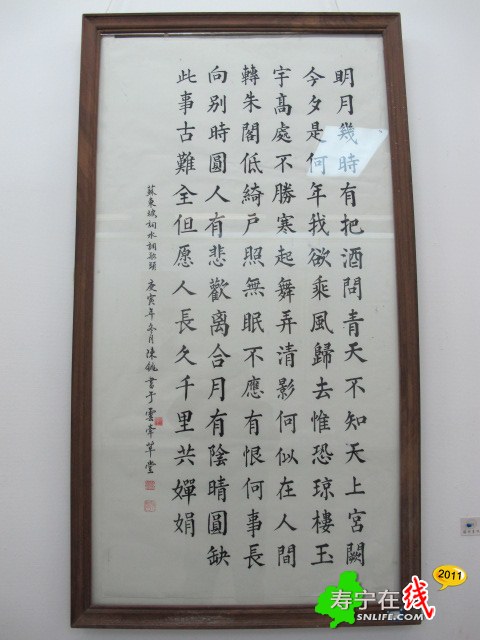 明月幾時有把酒問青天不知天上宮闕
今夕是何年我欲乘風歸去惟恐琼樓玉
宇高處不勝寒起舞弄清影何似在人間
轉朱閣低綺户照無眠不應有恨何事長
向别時圓人有悲歡离合月有陰晴圓缺
此事古難全但愿人長久千里共嬋娟
蘇東坡詞水調歌頭 庚寅年冬月陳銚書于雲壽草堂
2011
寿宁在线
SNLIFE.COM